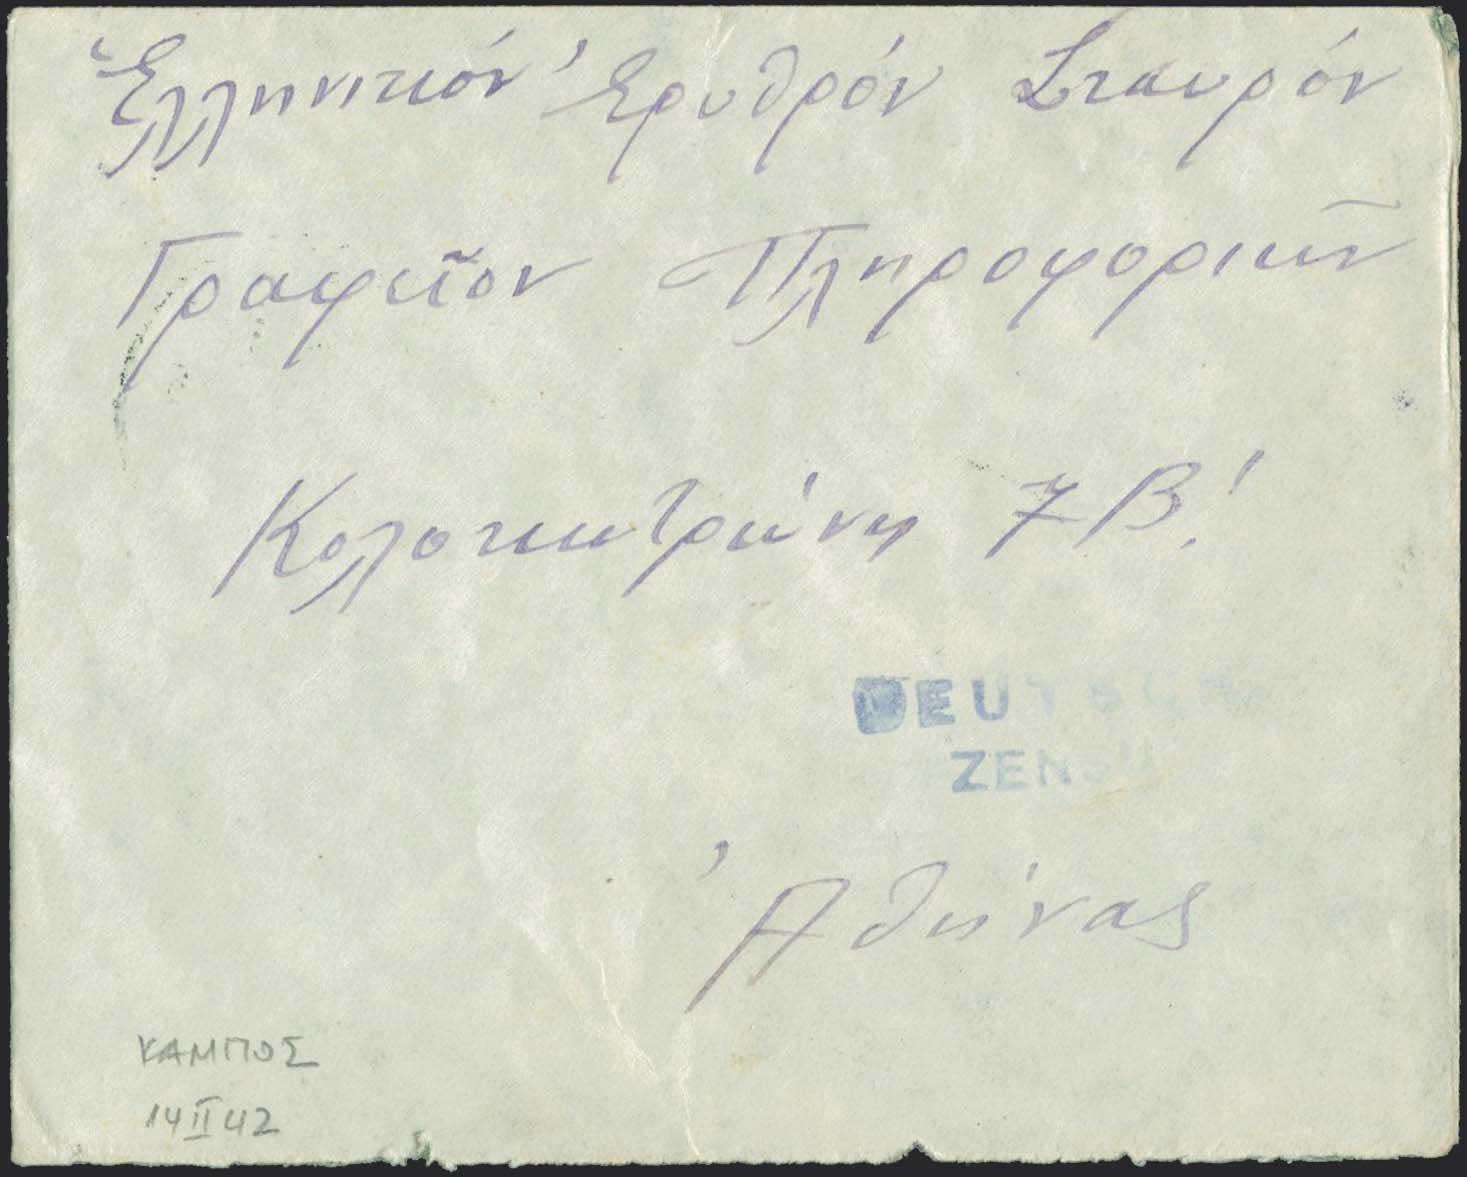 Ἑλληνικόν Ἐρυθρόν Σταυρόν
Γραφεῖον Πληροφοριῶν
Κολοκοτρώνη 7 Β!
DEUTSCH
ZENSU
Ἀθήνας
ΚΑΜΠΟΣ
14 II 42